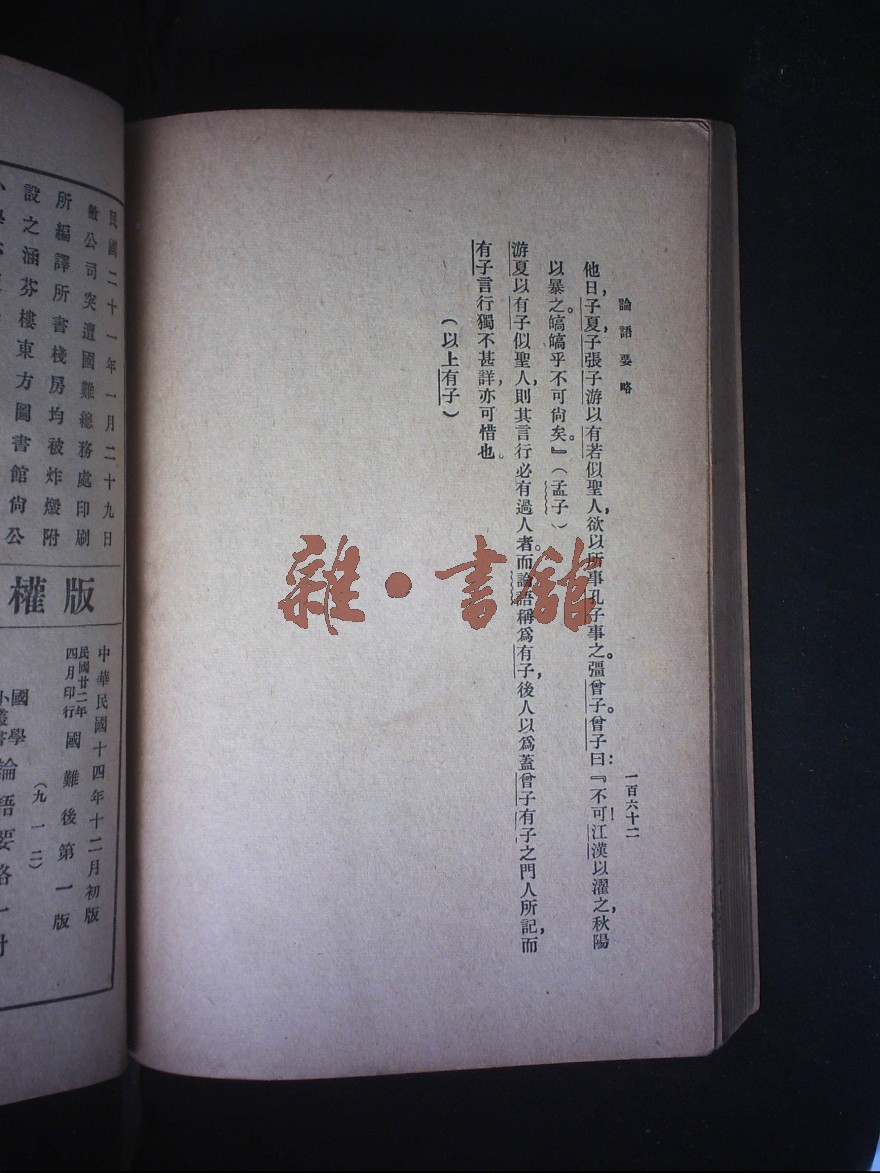 論語要略
一百六十二
他日，子夏，子張子游以有若似聖人，欲以所事孔子事之。彊曾子。曾子曰：『不可！江漢以濯之，秋陽
以暴之。皜皜乎不可尙矣。』（孟子）
游夏以有子似聖人，則其言行必有過人者。而論語稱爲有子，後人以爲蓋曾子有子之門人所記，而
有子言行獨不甚詳，亦可惜也。
（以上有子）
雜·書館
民國二十一年一月二十九日
敝公司突遭國難總務處印刷
所編譯所書棧房均被炸燬附
設之涵芬樓東方圖書館尙公
版權
中華民國十四年十二月初版
民國廿二年四月印行
國難後第一版
（九一二）
國學
小叢書
論語要略一